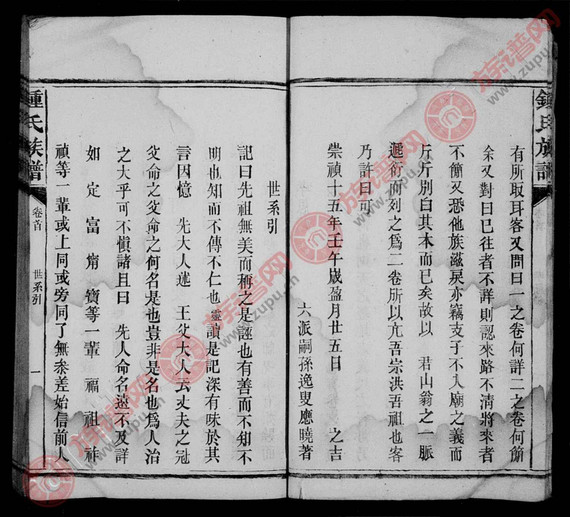 鍾氏族譜
有所取耳客又問曰一之卷何詳二之卷何簡
余又對曰已往者不詳則認來路不清將來者
不簡又恐他族滋戾亦竊支子不入廟之義而
斤斤別白其本而已矣故以 若山翁之一脈
遞衍而列之為二卷所以亢吾宗洪吾祖也客
乃許曰可
崇禎十五年壬午歲 月廿五日 之吉
六派嗣孫逸叟應曉著
世系引
記曰先祖無美而稱之是誣也有善而不知不
明也知而不傳不仁也 讀是記深有味於其
言因憶 先大人述 王父大人云丈夫之冠
父命之父命之何名是也豈非是名也為人治
之大乎可不慎諸且曰 先人命名 不及詳
如定富 寶等一輩 福祖
禎等一輩或上同或旁同了無參差始信前人
鍾氏族譜
卷首
世系引
一
族谱网
www.zupu.cn